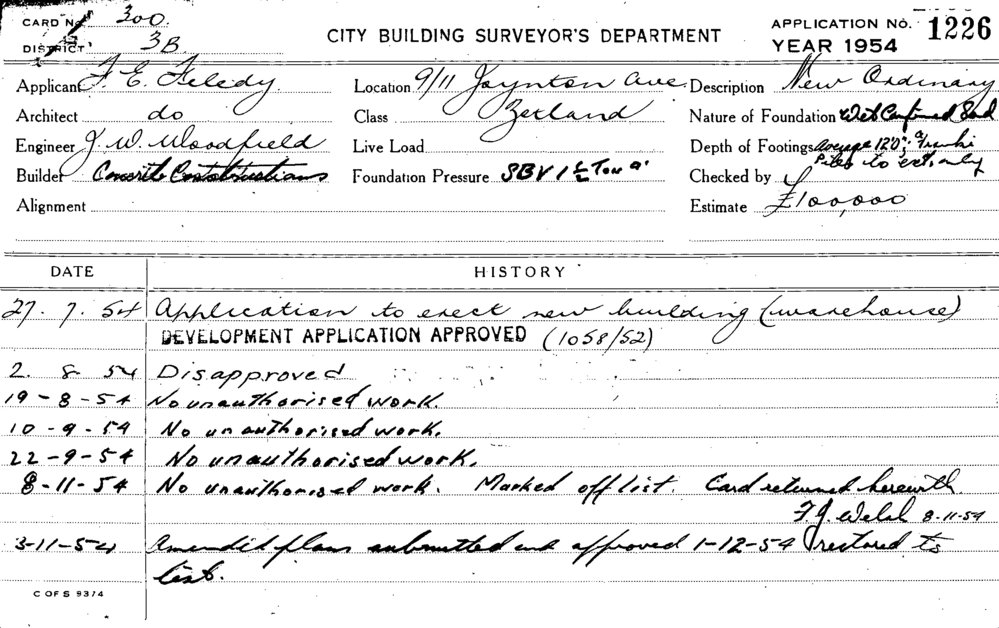 CARD No. 300
DISTRICT 3B
CITY BUILDING SURVEYOR'S DEPARTMENT
APPLICATION No. 1226
YEAR 1954
Applicant F. E. Feledy
Location 9/11 Joynton Ave.
Description New Ordinary
Architect do
Class Zetland
Nature of Foundation Wet Confined Sand
Engineer J. W. Woodfield
Live Load
Depth of Footings Average 12'0"; Franki
Piles to ext. only
Builder Concrete Constructions
Foundation Pressure SBV 1½ Ton
Checked by
Alignment
Estimate £100,000
DATE HISTORY
27. 7. 54 Application to erect new building (warehouse)
DEVELOPMENT APPLICATION APPROVED (1058/52)
2. 8 54 Disapproved
19-8-54 No unauthorised work.
10-9-54 No unauthorised work.
22-9-54 No unauthorised work.
8-11-54 No unauthorised work. Marked off list. Card returned herewith
F. J. Welsh 8-11-54
3-11-54 Amended plans submitted and approved 1-12-54 restored to
list.
C OF S 9374